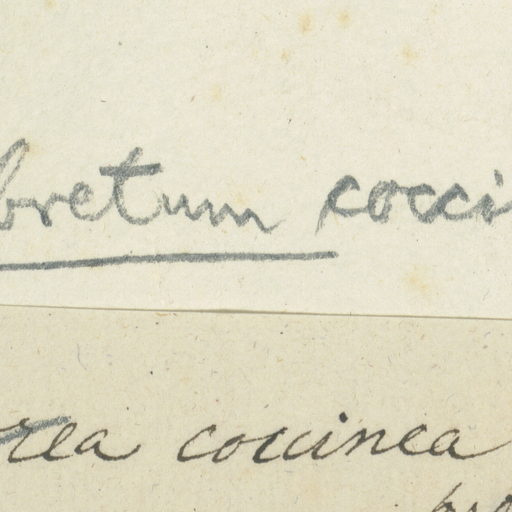 bretum cocci
rea coccinea